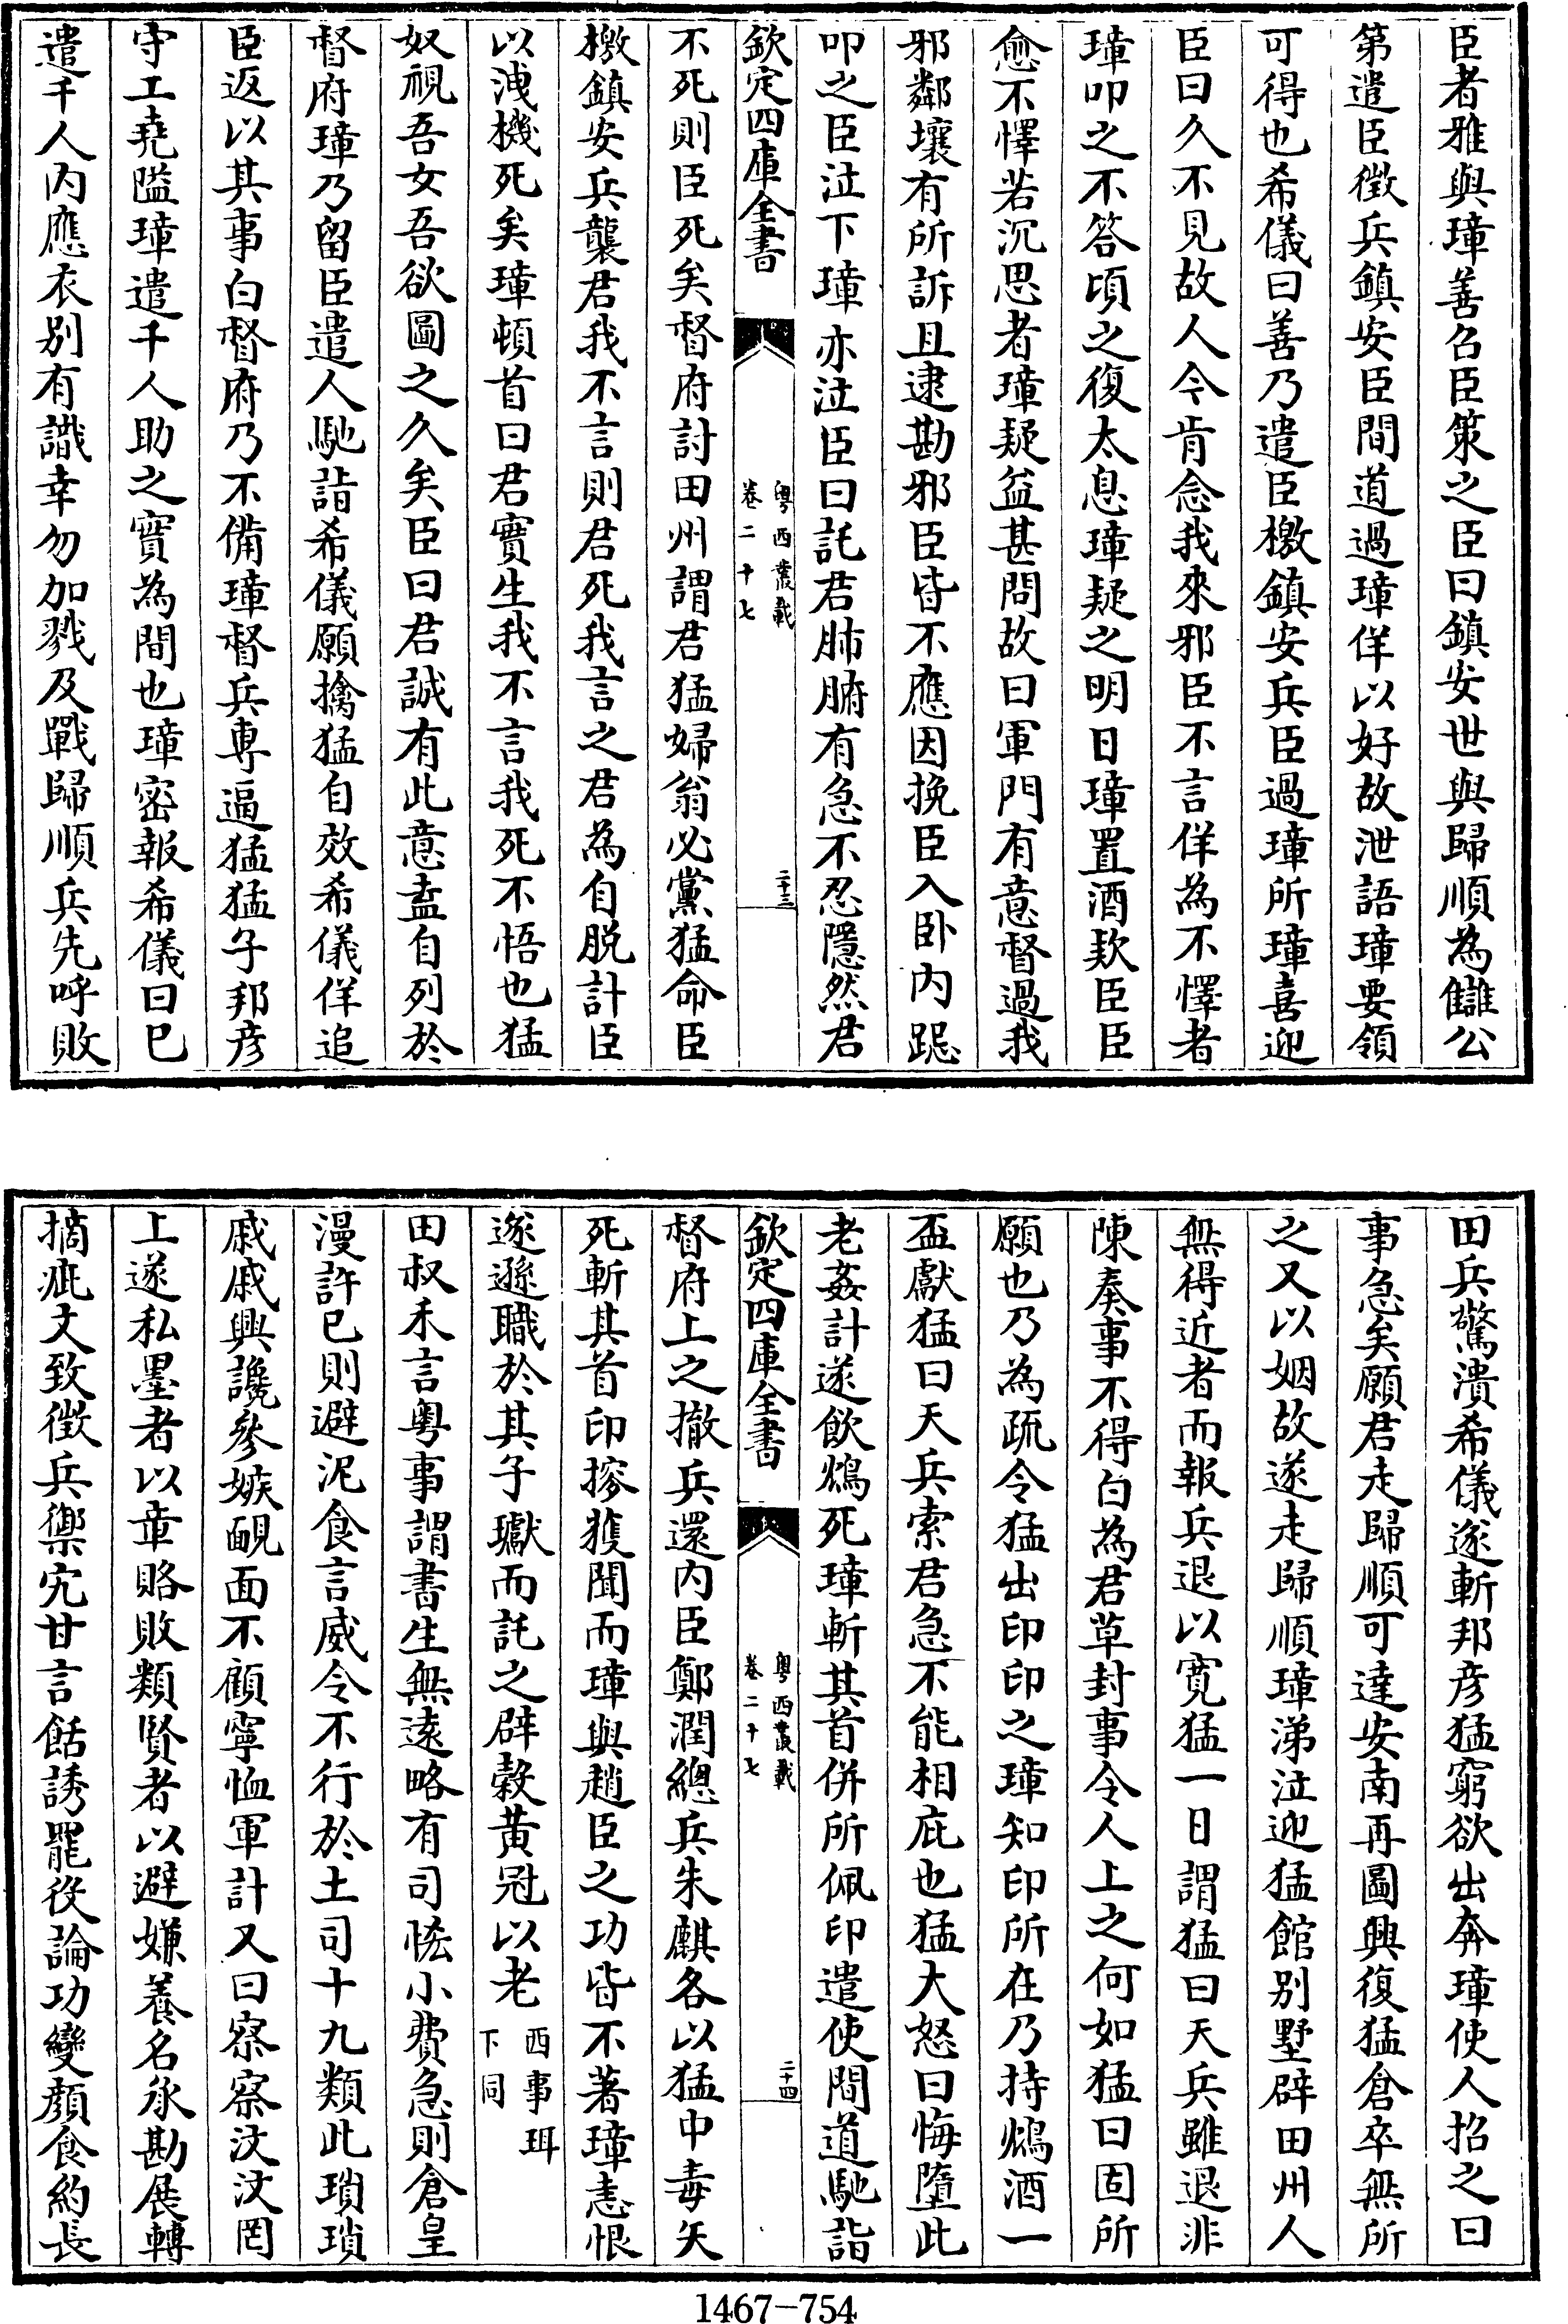 臣者雅與璋善召臣策之臣曰鎮安世與歸順為讎公
第遣臣徵兵鎮安臣間道過璋佯以好故泄語璋要領
可得也希儀曰善乃遣臣檄鎮安兵臣過璋所璋喜迎
臣曰久不見故人今肯念我來邪臣不言佯為不懌者
璋叩之不答頃之復太息璋疑之明日璋置酒欵臣臣
愈不懌若沉思者璋疑益甚問故曰軍門有意督過我
邪鄰壤有所訴且逮勘邪臣皆不應因挽臣入卧内跽
叩之臣泣下璋亦泣臣曰託君肺腑有急不忍隱然君
欽定四庫全書
粵西叢載
卷二十七
二十三
不死則臣死矣督府討田州謂君猛婦翁必黨猛命臣
檄鎮安兵襲君我不言則君死我言之君為自脱計臣
以洩機死矣璋頓首曰君實生我不言我死不悟也猛
奴視吾女吾欲圖之久矣臣曰君誠有此意盍自列於
督府璋乃留臣遣人馳詣希儀願擒猛自效希儀佯追
臣返以其事白督府乃不備璋督兵専逼猛猛子邦彦
守工堯隘璋遣千人助之實為間也璋密報希儀曰已
遣千人内應衣别有識幸勿加戮及戰歸順兵先呼敗
田兵驚潰希儀遂斬邦彦猛窮欲出奔璋使人招之曰
事急矣願君走歸順可達安南再圖興復猛倉卒無所
之又以姻故遂走歸順璋涕泣迎猛館别墅辟田州人
無得近者而報兵退以寛猛一日謂猛曰天兵雖退非
陳奏事不得白為君草封事令人上之何如猛曰固所
願也乃為疏令猛出印印之璋知印所在乃持鴆酒一
盃獻猛曰天兵索君急不能相庇也猛大怒曰悔墮此
老姦計遂飲鴆死璋斬其首併所佩印遣使間道馳詣
欽定四庫全書
粵西叢載
卷二十七
二十四
督府上之撤兵還内臣鄭潤總兵朱麒各以猛中毒矢
死斬其首印摉獲聞而璋與趙臣之功皆不著璋恚恨
遂遜職於其子瓛而託之辟穀黄冠以老西事珥下同
田叔禾言粵事謂書生無逺略有司恡小費急則倉皇
漫許已則避泥食言威令不行於土司十九類此瑣瑣
戚戚興讒參嫉靦面不顧寧恤軍計又曰察察汶汶罔
上遂私墨者以章賂敗類賢者以避嫌養名永勘展轉
摘疵文致徵兵禦宄甘言餂誘罷役論功變顔食約長
1467-754